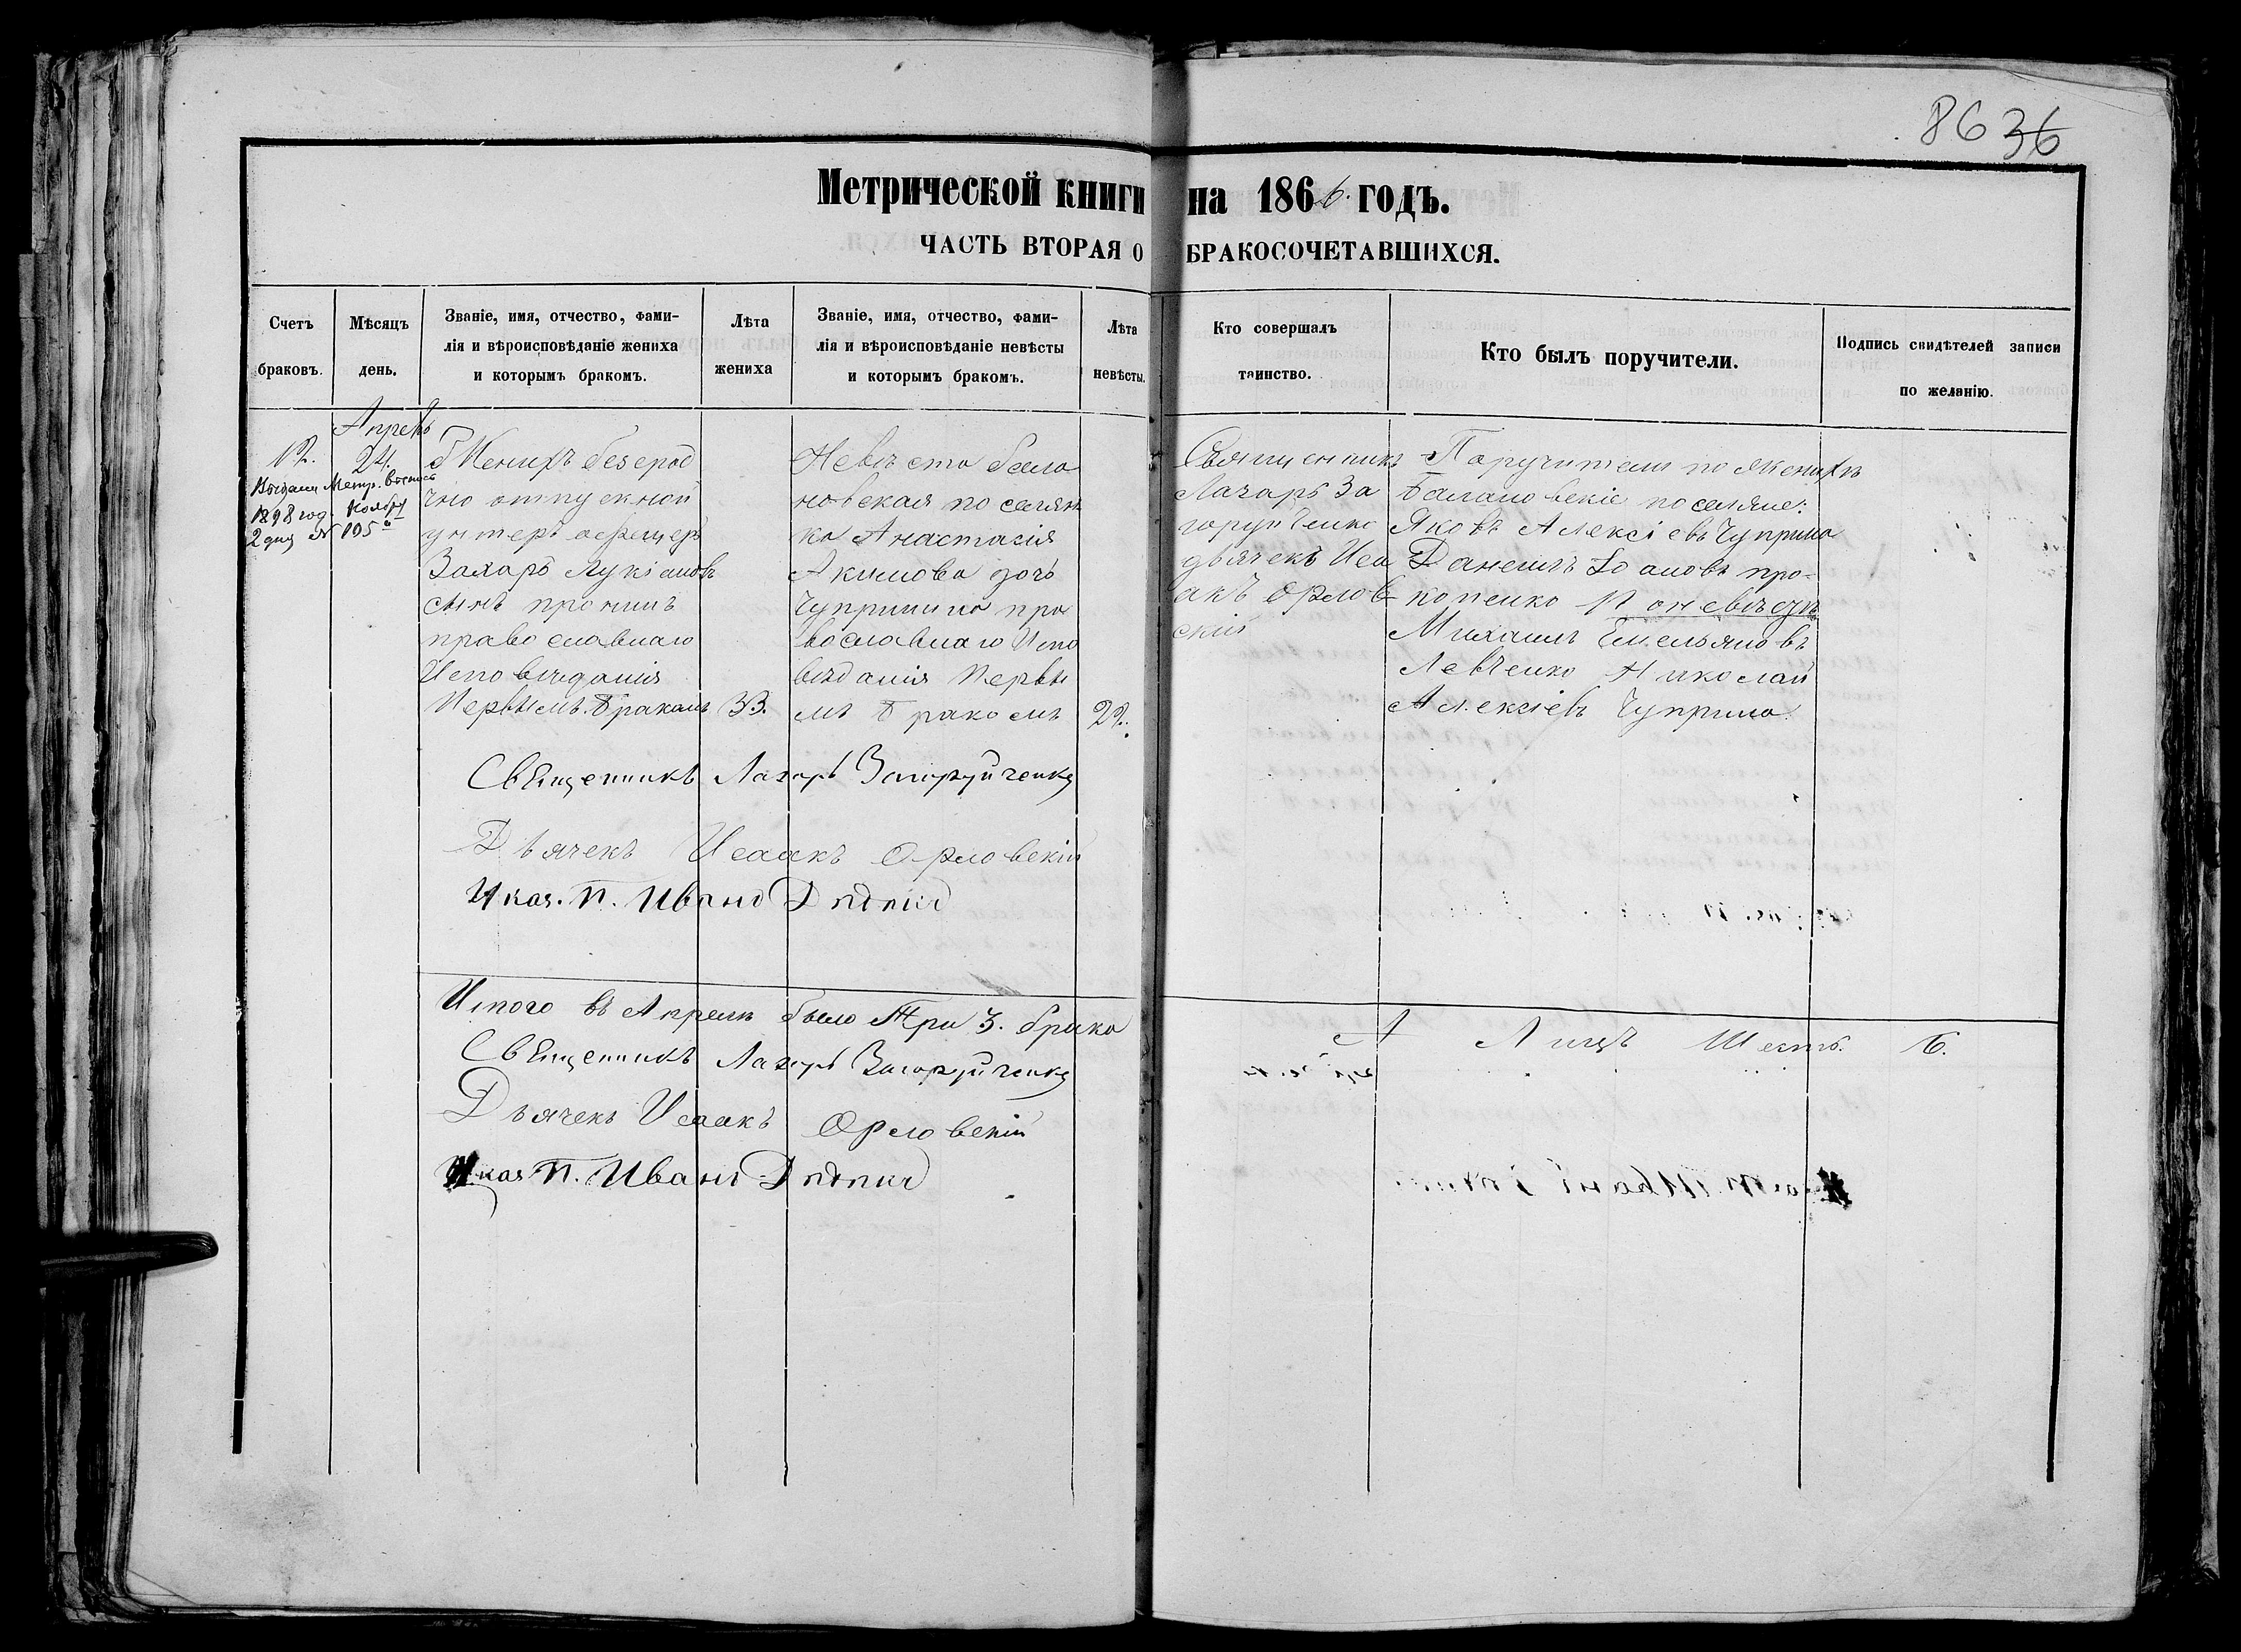 8636
Метрической книги на 1866. годъ.
ЧАСТЬ ВТОРАЯ О БРАКОСОЧЕТАВШИХСЯ.
Счетъ браковъ.
Мѣсяцъ день.
Званіе, имя, отчество, фами-
лія и вѣроисповѣданіе жениха
и которымъ бракомъ.
Лѣта жениха
Званіе, имя, отчество, фами-
лія и вѣроисповѣданіе невѣсты
и которымъ бракомъ.
Лѣта невѣсты.
Кто совершалъ таинство.
Кто былъ поручители.
Подпись свидѣтелей записи
по желанію.
Апрель
12.
24.
Выдана Метр. Выпись
1898 год. Ноябру
2 дня № 195
Женихъ безсроч
чно отпускной
унтеръ офецеръ
Захаръ Лукіановъ
сынъ
православнаго
Исповѣданія
Первымъ бракомъ
33.
Невѣста бала
новская поселян
ка Анастасія
Акимова дочь
Чуприни на пра
вославнаго Испо
вѣданія Первы
мъ бракомъ
22.
Священникъ
Лазарь За
горуйченко
дьячекъ Иса
акъ Орлов
скій
Поручители по женихѣ
Балановскіе поселяне:
Яковъ Алексіевъ Чуприна
Данеилъ Іоановъ про-
копенко По невѣсте
Михаилъ Емельяновъ
Левченко Николай
Алексіевъ Чуприна.
Священникъ Лазарь Загоруйченко
Дьячекъ Исаакъ Орловскій
Указ. П. Иванъ
Итого въ Апрели было Три 3. брака
А Лицъ Шесть. 6.
Священникъ Лазарь Загоруйченко
Дьячекъ Исаакъ Орловскій
Указ П. Иванъ